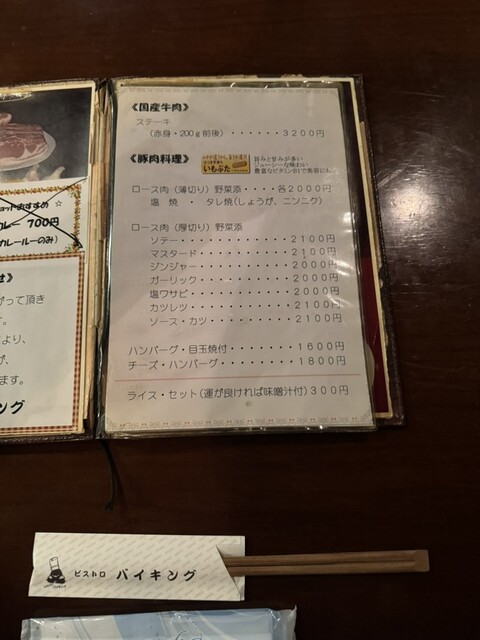 《国産牛肉》
ステーキ
(赤身・200g前後)・・・・・・3200円
《豚肉料理》
いもぶた
旨みと甘みが多い
ジューシーな味わい
豊富なビタミンB1で美容にも
ロース肉(薄切り)野菜添・・・・各2000円
塩焼・タレ焼(しょうが、ニンニク)
ロース肉(厚切り)野菜添
ソテー・・・・・・・・・・・・2100円
マスタード・・・・・・・・・・2100円
ジンジャー・・・・・・・・・・2000円
ガーリック・・・・・・・・・・2000円
塩ワサビ・・・・・・・・・・・2000円
カツレツ・・・・・・・・・・・2100円
ソース・カツ・・・・・・・・・2100円
ハンバーグ・目玉焼付・・・・・・1600円
チーズ・ハンバーグ・・・・・・・1800円
ライス・セット(運が良ければ味噌汁付)300円
おすすめ ☆
カレー 700円
カレールーのみ)
がって頂き
す。
より、
が、
ます。
ング
ビストロ バイキング